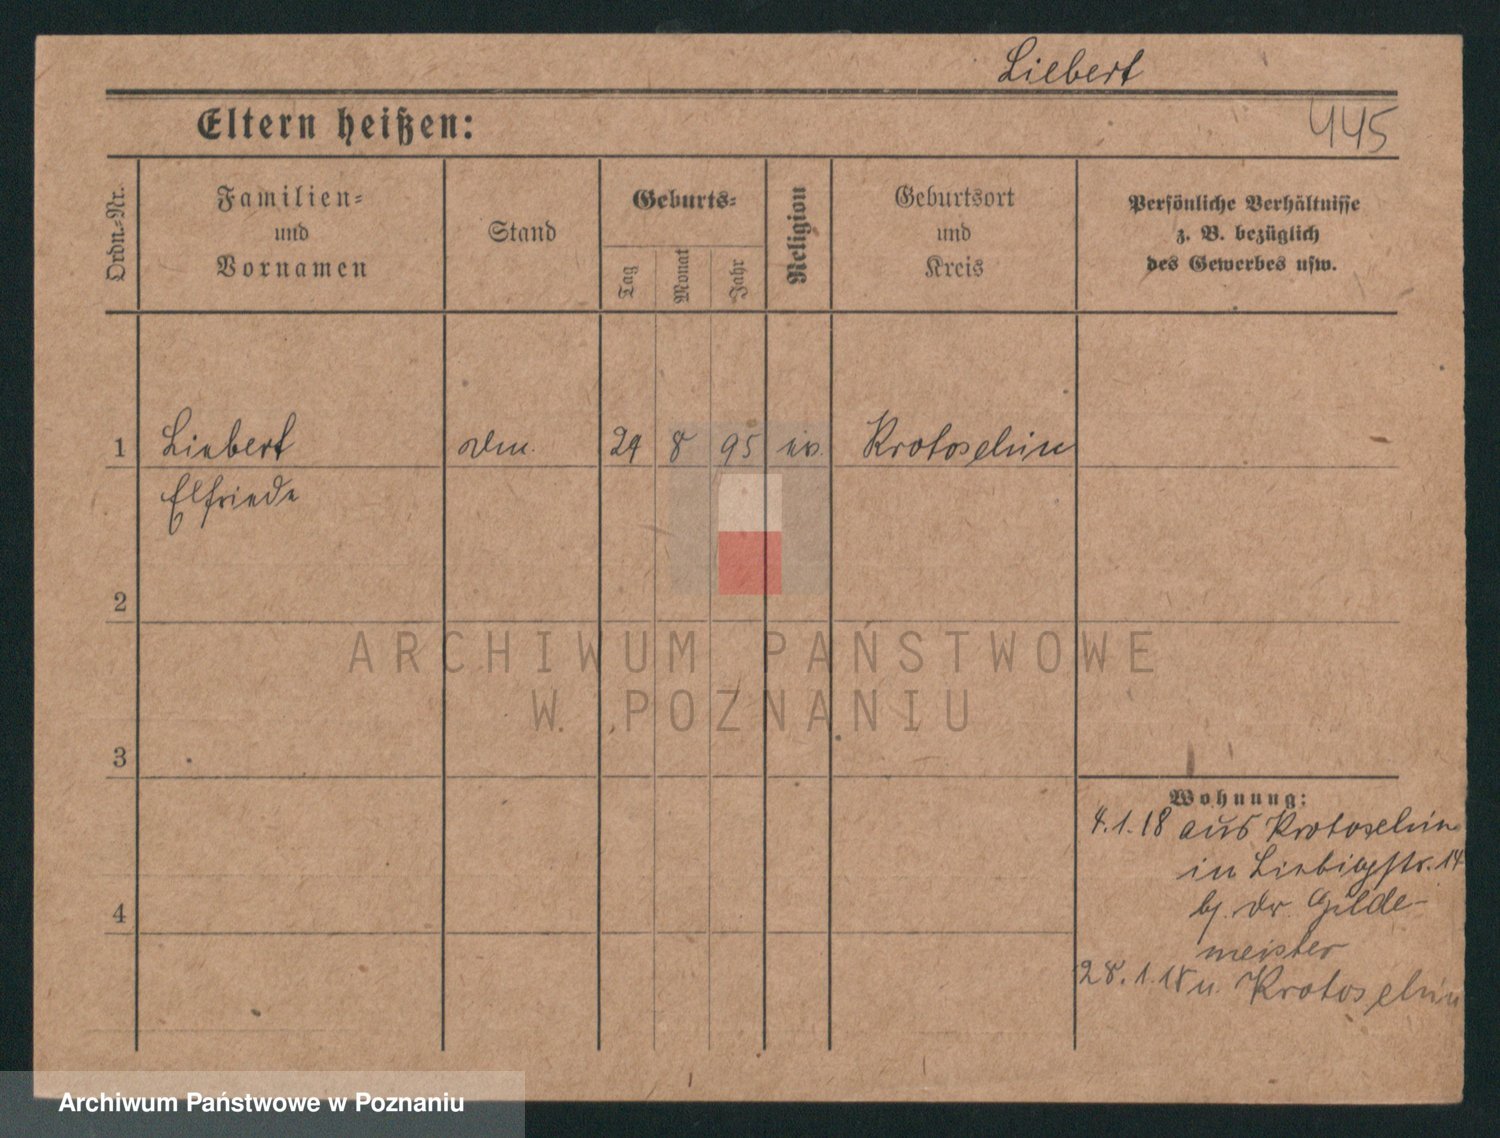 Liebert
Eltern heißen:
445
Ordn.-Nr.
Familien-
und
Vornamen
Stand
Geburts-
Tag
Monat
Jahr
Religion
Geburtsort
und
Kreis
Persönliche Verhältnisse
z. B. bezüglich
des Gewerbes usw.
1 Liebert 24 8 95 ev. Krotoschin
Elfriede
2
3
4
Wohnung:
4.1.18 aus Krotoschin
in Liebigstr. 14
bj. Dr. Gilde-
meister
28.1.18 n. Krotoschin
ARCHIWUM PAŃSTWOWE
W POZNANIU
Archiwum Państwowe w Poznaniu